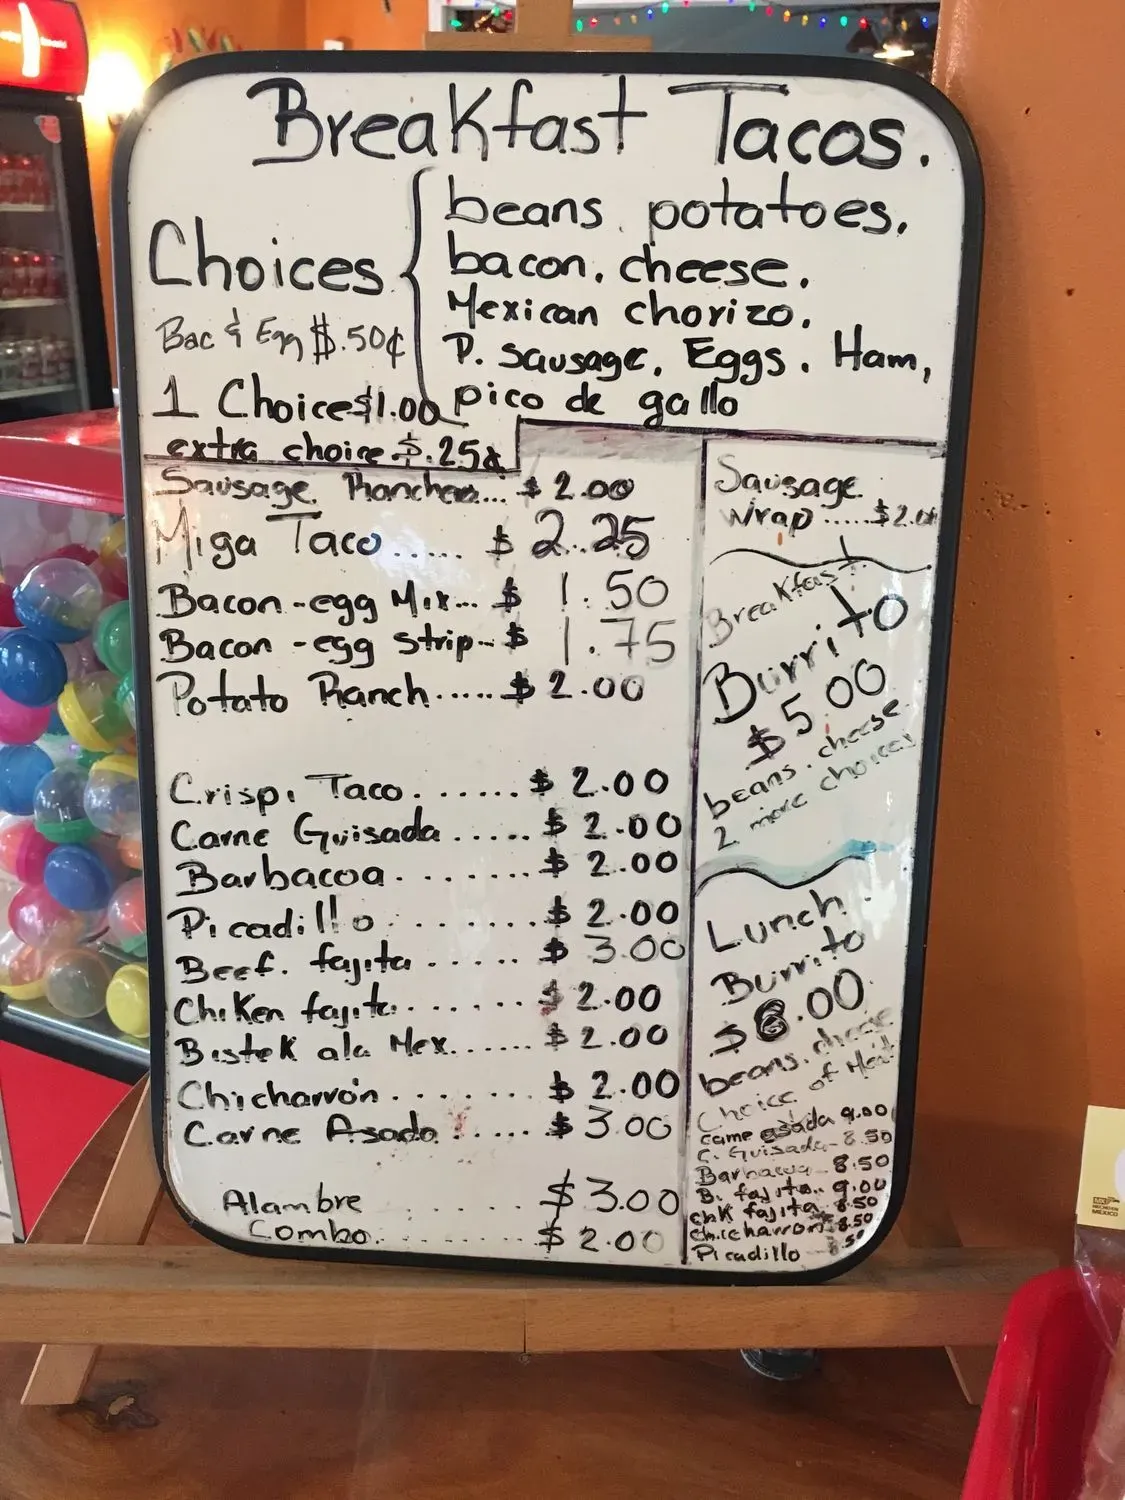 Breakfast Tacos.
Choices
beans, potatoes,
bacon, cheese,
Mexican chorizo,
P. sausage, Eggs, Ham,
pico de gallo
Bac & Egg $.50¢
1 Choice $1.00
extra choice $.25¢
Sausage Ranchera... $2.00
Miga Taco..... $ 2.25
Bacon-egg Mix... $ 1.50
Bacon-egg strip-- $ 1.75
Potato Ranch..... $ 2.00
Crispi Taco....... $ 2.00
Carne Guisada..... $ 2.00
Barbacoa....... $ 2.00
Picadillo........ $ 2.00
Beef. fajita..... $ 3.00
Chiken fajita....... $ 2.00
Bistek ala Mex...... $ 2.00
Chicharrón....... $ 2.00
Carne Asada..... $ 3.00
Alambre ..... $ 3.00
Combo....... $ 2.00
Sausage
Wrap.....$2.00
Breakfast
Burrito
$5.00
beans, cheese
2 more choices
Lunch
Burrito
$8.00
beans, cheese
Choice of Meat
carne asada 9.00
C. Guisada- 8.50
Barbacoa 8.50
B. fajita.. 9.00
chk fajita. 8.50
chicharron 8.50
Picadillo 8.50